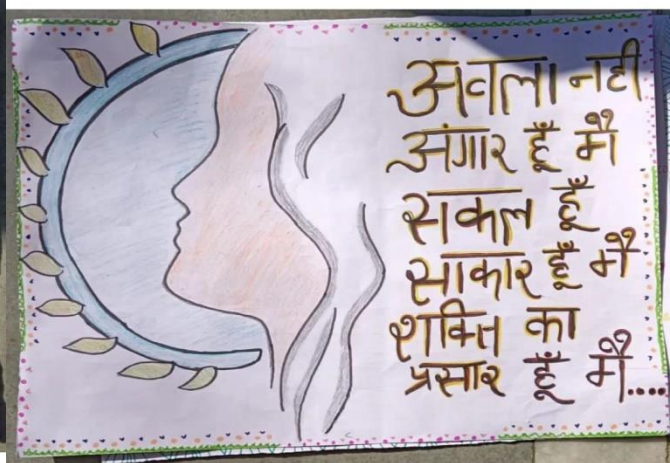 अवला नही
अंगार हूँ मै
सकल हूँ
साकार हूँ मै
शक्ति का
प्रसार हूँ मै....